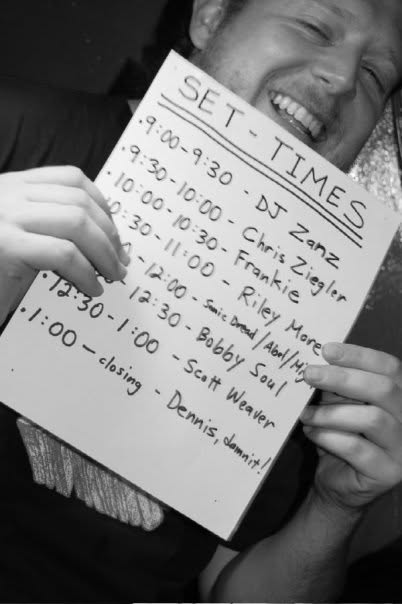 SET-TIMES
• 9:00-9:30 - DJ Zanz
• 9:30-10:00 - Chris Ziegler
• 10:00-10:30 - Frankie
10:30-11:00 - Riley More
- 12:00 - Sonic Dread/Abel/
12:30 - Bobby Soul
• 12:30 - 1:00 - Scott Weaver
• 1:00 - closing - Dennis, damnit!